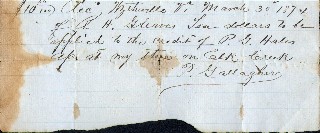 $10 00 Rec'd Wytheville Va March 30th 1874
of R. H. Gleaves Ten dollars to be
applied to the credit of P. G. Hale
at my store on Calk Creek
P. Gallagher